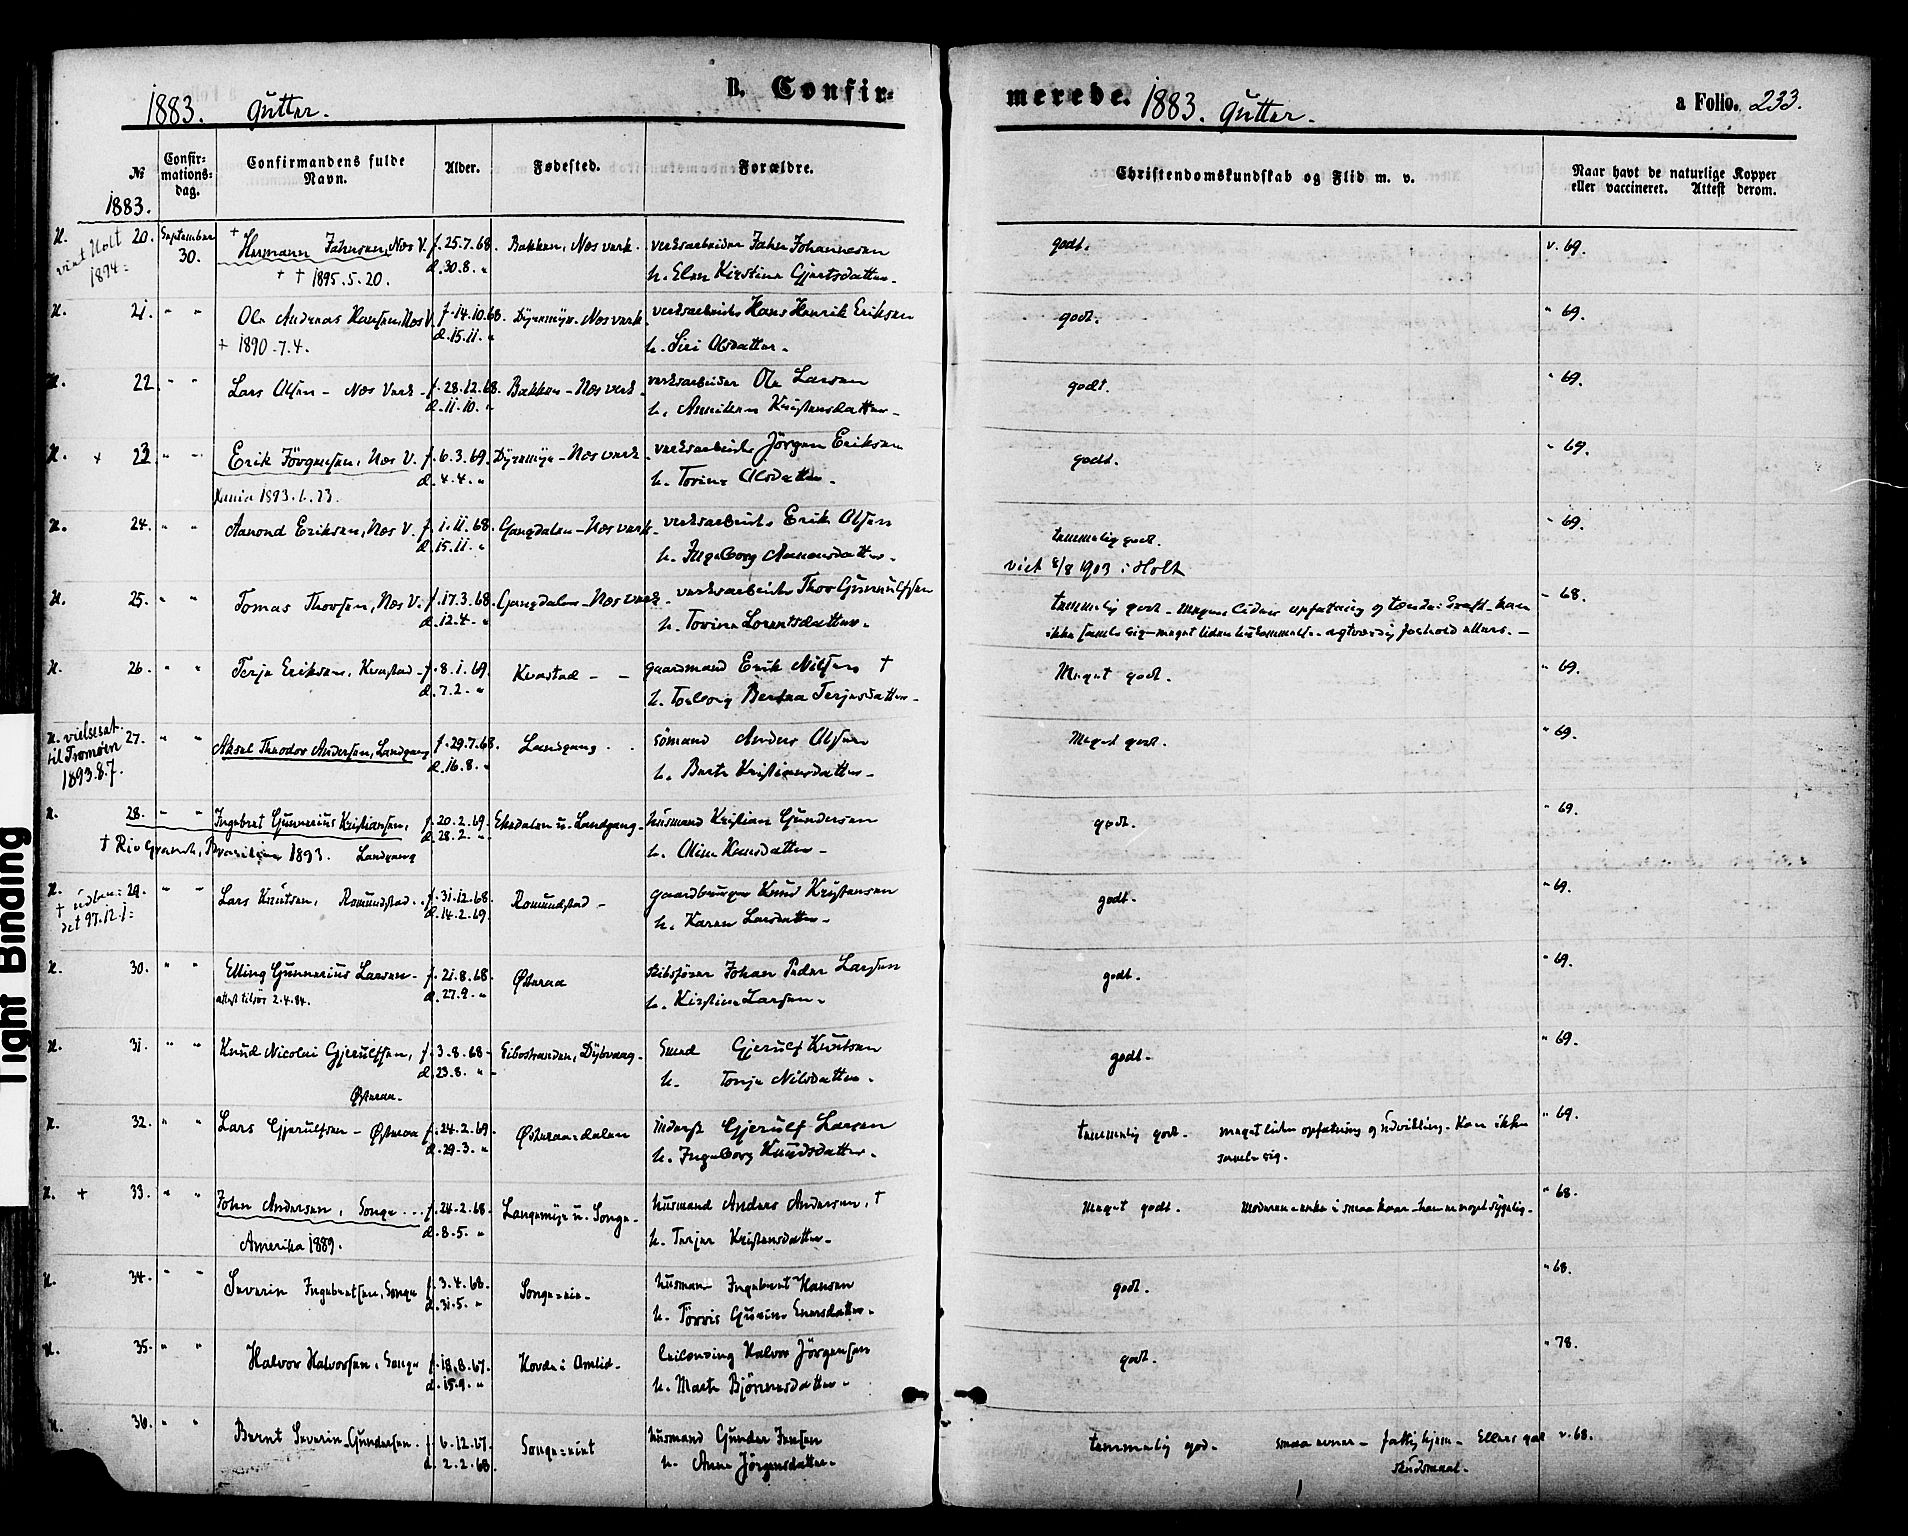 B. Confir-
merede.
1883. gutter.
1883. gutter.
a Folio. 233.
№
Confir-
mations-
dag.
Confirmandens fulde
Navn.
Alder.
Fødested.
Forældre.
Christendomskundskab og Flid m. v.
Naar havt de naturlige Kopper
eller vaccineret. Attest derom.
1883.
H. 20. September + Hermann Jahnsen, Næs V. f. 25.7.68. Bakken, Næs verk. verksarbeider Johannesen godt. v. 69.
viet Holt 30. d. 30.8. " h. Elen Kirstine Gjertsdatter.
1894. + + 1895.5.20.
H. 21. " " Ole Andreas Hansen, Næs V. f. 14.10.68. Dyremyr. Næs verk. verksarbeider Hans Henrik Eriksen godt. " 69.
+ 1890.7.4. d. 15.11. " h. Siri Olsdatter.
H. 22 " " Lars Olsen - Næs Verk - f. 28.12.68. Bakken - Næs verk. verksarbeider Ole Larsen godt. " 69.
d. 11.10. " h. Anniken Kristensdatter -
H. + 23 " " Erik Jörgensen, Næs V. f. 6.3.69. Dyremyr - Næs verk. verksarbeider Jörgen Eriksen godt. " 69.
1893.1.23. d. 4.4. " h. Torine Olsdatter.
H. 24. " " Aanond Eriksen, Næs V. f. 1.11.68. Gangdalen - Næs verk. verksarbeider Erik Olsen temmelig godt. " 69.
d. 15.11. " h. Ingeborg
viet 8/8 1903 i Holt
H. 25. " " Tomas Thorsen, Næs V. f. 17.3.68. Gangdalen - Næs verk. verksarbeider Thor Gunnulfsen temmelig godt - meget liden opfatning og - kan - 68.
d. 12.4. - h. Torine Lorentsdatter. ikke samle sig - meget liden - agtværdig forhold ellers. -
H. 26. " " Terje Eriksen, Kvastad - f. 8.1.69. Kvastad - - gaardmand Erik Nilsen + Meget godt. " 69.
d. 7.2. " h. Torborg Bertea Terjesdatter -
H. vielsesat. 27. " " Aksel Theodor Andersen, Landgang f. 29.7.68. Landgang. . sömand Anders Olsen Meget godt. " 69.
til Tromöen d. 16.8. " h. Berte Kristiansdatter -
1893.8.7.
H. 28. " " Ingebret Gunnerius Kristiansen, f. 20.2.69. Eksdalen u. Landgang. husmand Kristian Gundersen godt. " 69.
+ Rio Grande, Brasilien 1893. Landgang d. 28.2. " h. Oline Hansdatter -
H. 29. " " Lars Knutsen, Romundstad . f. 31.12.68. Romundstad - gaardbruger Knud Kristensen godt. " 69.
+ d. 14.2.69. h. Karen Larsdatter -
det 97.12.1
H. 30. " " Elling Gunnerius Larsen - f. 21.8.68. Østeraa skibsförer Johan Peder Larsen godt. " 69.
attest tilsjös 2.4.84. d. 27.9. " h. Kirstine Larsen -
H. 31. " " Knud Nicolai Gjerulfsen, f. 3.8.68 - Eibostranden, Dybvaag. Gjerulf Knutsen godt - " 69.
Østeraa. d. 23.8. " - h. Tonje Nilsdatter.
H. 32. " " Lars Gjerulfsen - Østeraa f. 24.2.69. Østeraa-dalen inderst Gjerulf Larsen temmelig godt. meget liden opfatning og udvikling. Kan ikke " 69.
d. 29.3. " h. Ingeborg Knudsdatter. samle sig.
H. + 33. " " John Andersen, Songe . . f. 24.2.68. Langemyr u. Songe - husmand Anders Andersen, + Meget godt. Moderen - enke i smaa kaar - han er noget sygelig. " 68.
Amerika 1889. d. 8.5. " h. Terjer Kristensdatter -
H. 34. " " Severin Ingebretsen, Songe f. 3.4.68. Songe-eie. husmand Ingebret Hansen godt. " 68.
d. 31.5. " h.
H. 35. " " Halvor Halvorsen, Songe f. 18.8.67. Hovde i Amlid. Halvor Jörgensen godt. " 78.
d. 15.9. " h. Marte Björnusdatter -
H. 36. " " Bernt Severin Gundersen . f. 6.12.67. Songe-eiet husmand Gunder Jensen temmelig god. smaa evner - fattig hjem - Ellers god v. 68.
d. 2.2.68. h. Anne Jörgensdatter. skudsmaal.
Tight Binding